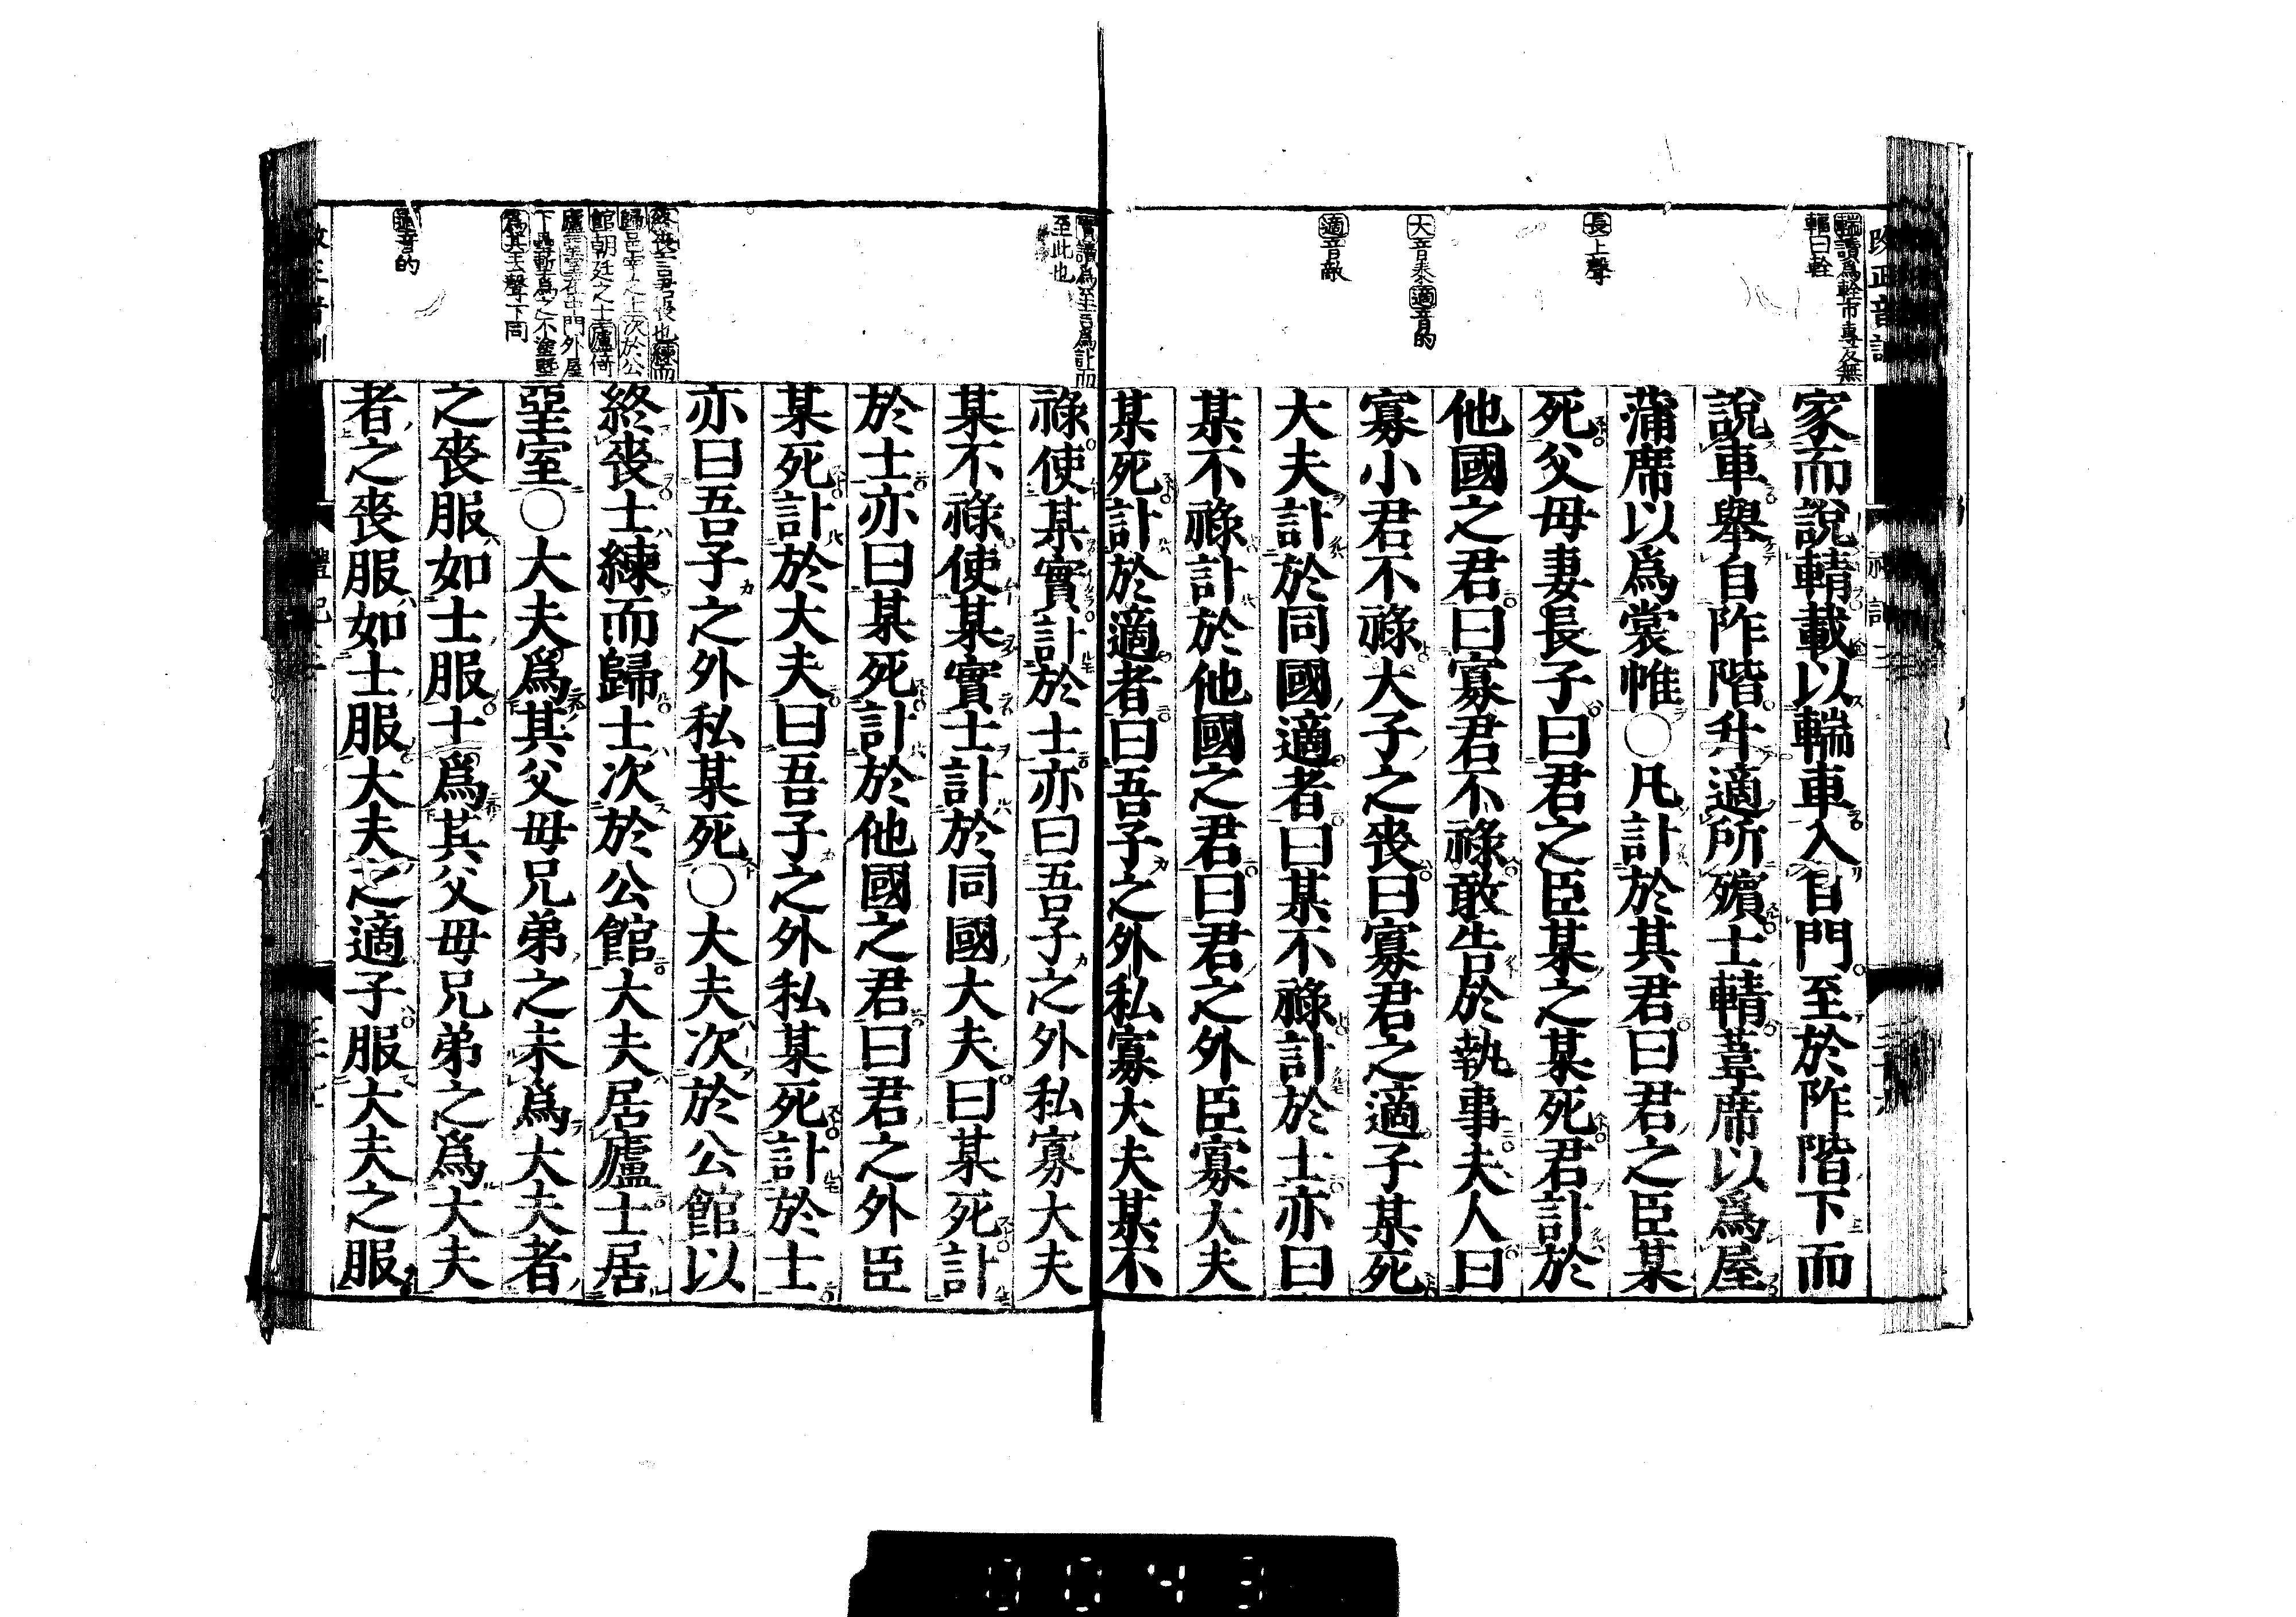 輲讀爲輇市專反無
輻曰輇
長上聲
大音泰適音的
適音敵
家而說輤載以輲車入自門至於阼階下而
說車舉自阼階升適所殯士輤葦席以爲屋
蒲席以爲裳帷○凡訃於其君曰君之臣某
死父母妻長子曰君之臣某之某死君訃於
他國之君曰寡君不祿敢告於執事夫人曰
寡小君不祿大子之喪曰寡君之適子某死
大夫訃於同國適者曰某不祿訃於士亦曰
某不祿訃於他國之君曰君之外臣寡大夫
某死訃於適者曰吾子之外私寡大夫某不
實讀爲至言爲訃而
至此也
終喪言君喪也練而
館朝廷之士廬倚
下爲其去聲下同
音的
祿使某實訃於士亦曰吾子之外私寡大夫
某不祿使某實士訃於同國大夫曰某死訃
於士亦曰某死訃於他國之君曰君之外臣
某死訃於大夫曰吾子之外私某死訃於士
亦曰吾子之外私某死○大夫次於公館以
終喪士練而歸士次於公館大夫居廬士居
堊室○大夫爲其父母兄弟之未爲大夫者
之喪服如士服士爲其父母兄弟之爲大夫
者之喪服如士服大夫之適子服大夫之服
0043